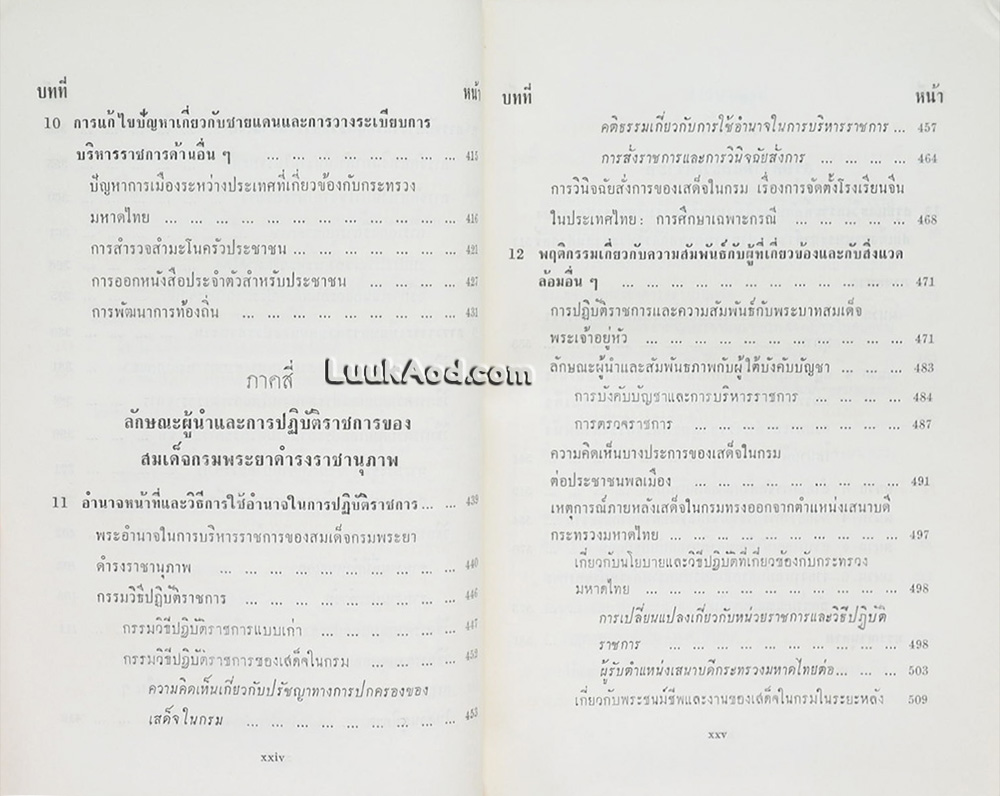 บทที่ หน้า
10 การแก้ไขปัญหาเกี่ยวกับชายแดนและการวางระเบียบการ
บริหารราชการด้านอื่น ๆ ... ... ... ... ... ... ... ... 415
ปัญหาการเมืองระหว่างประเทศที่เกี่ยวข้องกับกระทรวง
มหาดไทย ... ... ... ... ... ... ... ... ... ... ... 416
การสำรวจสำมะโนครัวประชาชน ... ... ... ... ... ... 421
การออกหนังสือประจำตัวสำหรับประชาชน ... ... ... ... 427
การพัฒนาการท้องถิ่น ... ... ... ... ... ... ... ... 431
ภาคสี่
ลักษณะผู้นำและการปฏิบัติราชการของ
สมเด็จกรมพระยาดำรงราชานุภาพ
11 อำนาจหน้าที่และวิธีการใช้อำนาจในการปฏิบัติราชการ ... ... 439
พระอำนาจในการบริหารราชการของสมเด็จกรมพระยา
ดำรงราชานุภาพ ... ... ... ... ... ... ... ... ... 440
กรรมวิธีปฏิบัติราชการ ... ... ... ... ... ... ... ... 446
กรรมวิธีปฏิบัติราชการแบบเก่า ... ... ... ... ... 447
กรรมวิธีปฏิบัติราชการของเสด็จในกรม ... ... ... 452
ความคิดเห็นเกี่ยวกับปรัชญาทางการปกครองของ
เสด็จในกรม ... ... ... ... ... ... ... ... 453
xxiv
บทที่ หน้า
คติธรรมเกี่ยวกับการใช้อำนาจในการบริหารราชการ ... 457
การสั่งราชการและการวินิจฉัยสั่งการ ... ... ... ... 464
การวินิจฉัยสั่งการของเสด็จในกรม เรื่องการจัดตั้งโรงเรียนจีน
ในประเทศไทย: การศึกษาเฉพาะกรณี ... ... ... ... ... 468
12 พฤติกรรมเกี่ยวกับความสัมพันธ์กับผู้ที่เกี่ยวข้องและกับสิ่งแวด
ล้อมอื่น ๆ ... ... ... ... ... ... ... ... ... ... ... 471
การปฏิบัติราชการและความสัมพันธ์กับพระบาทสมเด็จ
พระเจ้าอยู่หัว ... ... ... ... ... ... ... ... ... ... 471
ลักษณะผู้นำและสัมพันธภาพกับผู้ใต้บังคับบัญชา ... ... ... 483
การบังคับบัญชาและการบริหารราชการ ... ... ... ... 484
การตรวจราชการ ... ... ... ... ... ... ... ... 487
ความคิดเห็นบางประการของเสด็จในกรม
ต่อประชาชนพลเมือง ... ... ... ... ... ... ... ... 491
เหตุการณ์ภายหลังเสด็จในกรมทรงออกจากตำแหน่งเสนาบดี
กระทรวงมหาดไทย ... ... ... ... ... ... ... ... ... 497
เกี่ยวกับนโยบายและวิธีปฏิบัติที่เกี่ยวข้องกับกระทรวง
มหาดไทย ... ... ... ... ... ... ... ... ... ... 498
การเปลี่ยนแปลงเกี่ยวกับหน่วยราชการและวิธีปฏิบัติ
ราชการ ... ... ... ... ... ... ... ... ... ... 498
ผู้รับตำแหน่งเสนาบดีกระทรวงมหาดไทยต่อ... ... ... 503
เกี่ยวกับพระชนม์ชีพและงานของเสด็จในกรมในระยะหลัง 509
xxv
LuukAod.com